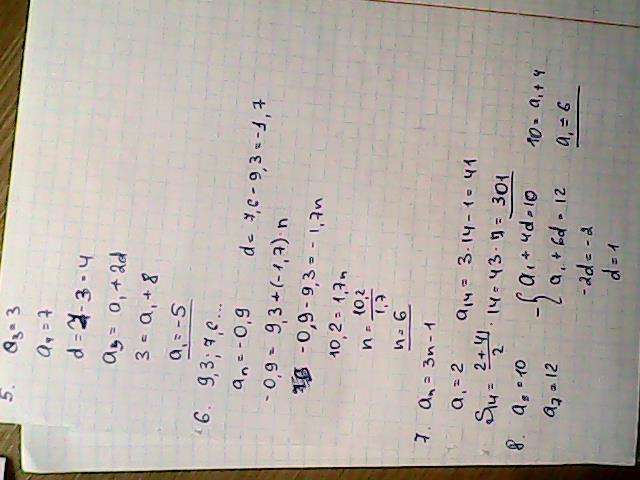 5. a₃=3
a₄=7
d=7-3=4
a₃=a₁+2d
3=a₁+8
a₁=-5
6. 9,3; 7,6...
aₙ=-0,9 d=7,6-9,3=-1,7
-0,9=9,3+(-1,7)·n
-0,9-9,3=-1,7n
10,2=1,7n
n=10,2/1,7
n=6
7. aₙ=3n-1
a₁=2 a₁₄=3·14-1=41
S₁₄=(2+41)/2·14=43·7=301
8. a₅=10 -{a₁+4d=10 10=a₁+4
a₇=12 a₁+6d=12 a₁=6
-2d=-2
d=1